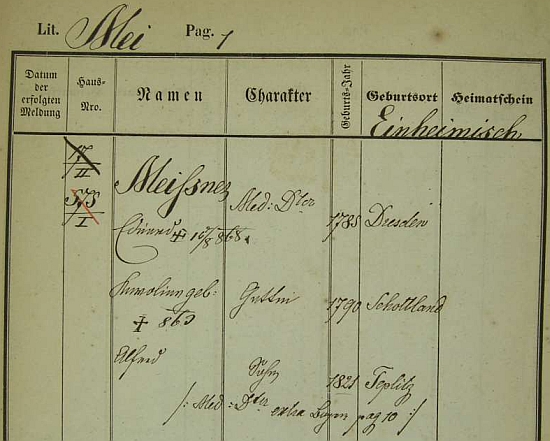 Lit. Mei Pag. 1
Datum der erfolgten Meldung
Haus-Nro.
Namen
Charakter
Geburts-Jahr
Geburtsort
Heimatschein
Einheimisch
II
I
Meißner
Med: Dtor
Eduard 1785 Dresden
geb: Gattin 1790 Schottland
† 863
Alfred Sohn 1821 Teplitz
/: Med: Dtor extra Bogen pag 10 :/